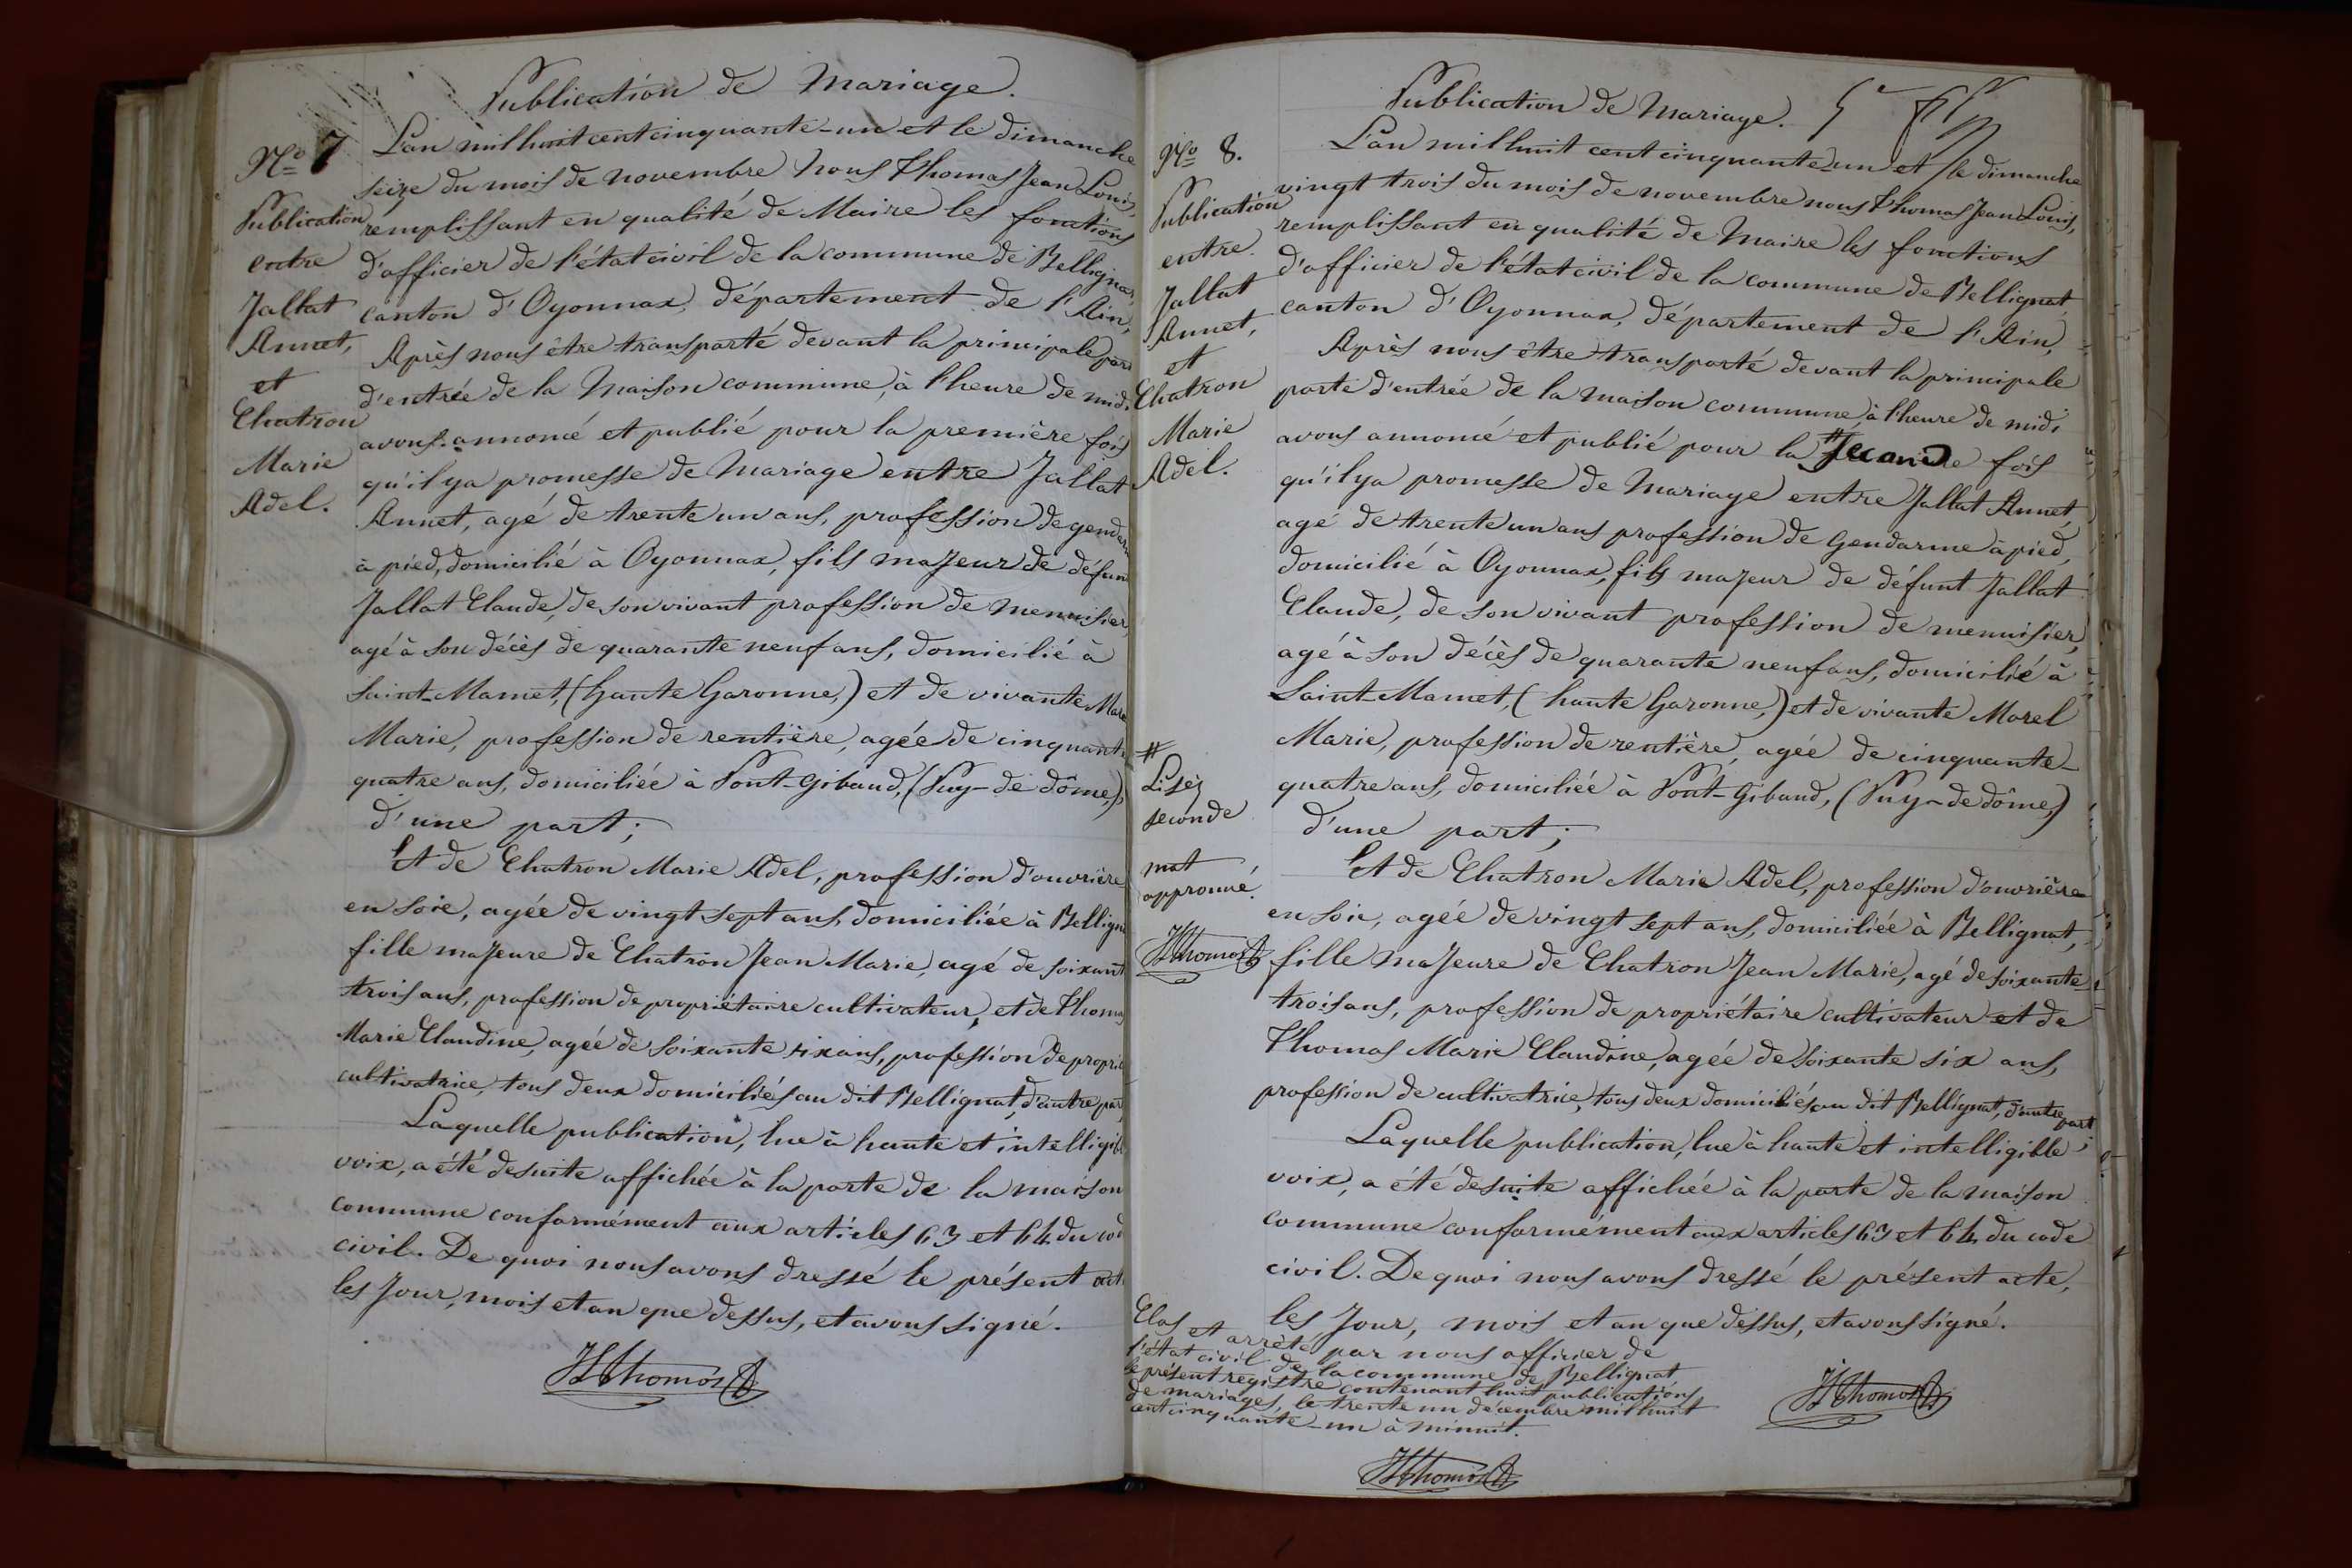 Publication de Mariage.
Nº 7
Publication
entre
Jallat
Annet,
et
Chatron
Marie
Adel.
L'an mil huit cent cinquante-un et le dimanche
seize du mois de novembre Nous Thomas Jean Louis,
remplissant en qualité de Maire les fonctions
d'officier de l'état civil de la commune de Bellignat,
canton d'Oyonnax, département de l'Ain,
Après nous être transporté devant la principale por
d'entrée de la Maison commune, à l'heure de midi
avons annoncé et publié pour la première fois
qu'il y a promesse de Mariage entre Jallat
Annet, agé de trente un ans, profession de gendar
à pied, domicilié à Oyonnax, fils majeur de défun
Jallat Claude, de son vivant profession de menuisier,
agé à son décès de quarante neuf ans, domicilié à
Saint-Mamet, (haute Garonne,) et de vivante Mare
Marie, profession de rentière, agée de cinquante
quatre ans, domiciliée à Pont-Gibaud, (Puy-de dôme,)
d'une part;
Et de Chatron Marie Adel, profession d'ouvrière
en soie, agée de vingt sept ans, domiciliée à Bellign
fille majeure de Chatron Jean Marie, agé de soixant
trois ans, profession de propriétaire cultivateur, et de Thoma
Marie Claudine, agée de soixante six ans, profession de proprié
cultivatrice, tous deux domiciliés au dit Bellignat, d'autre par
Laquelle publication, lue à haute et intelligibl
voix, a été desuite affichée à la porte de la maison
commune conformément aux articles 63 et 64 du cod
civil. De quoi nous avons dressé le présent act
les Jour, mois et an que dessus, et avons signé.
JLThomas
Publication de Mariage.
Nº 8.
Publication
entre
Jallat
Annet,
et
Chatron
Marie
Adel.
L'an mil huit cent cinquante-un et le dimanche
vingt trois du mois de novembre nous Thomas Jean Louis,
remplissant en qualité de Maire les fonctions
d'officier de l'état civil de la commune de Bellignat,
canton d'Oyonnax, département de l'Ain,
Après nous être transporté devant la principale
porte d'entrée de la maison commune, à l'heure de midi
avons annoncé et publié pour la # seconde fois
qu'il y a promesse de Mariage entre Jallat Annet,
agé de trente un ans profession de Gendarme à pied,
domicilié à Oyonnax, fils majeur de défunt Jallat
Claude, de son vivant profession de menuisier,
agé à son décès de quarante neuf ans, domicilié à
Saint-Mamet, (haute Garonne,) et de vivante Marel
Marie, profession de rentière, agée de cinquante-
quatre ans, domiciliée à Pont-Gibaud, (Puy-de dôme,)
d'une part;
Et de Chatron Marie Adel, profession d'ouvrière
en soie, agée de vingt sept ans, domiciliée à Bellignat,
fille majeure de Chatron Jean Marie, agé de soixante-
trois ans, profession de propriétaire cultivateur et de
Thomas Marie Claudine, agée de soixante six ans,
profession de cultivatrice, tous deux domiciliés au dit Bellignat, d'autre part;
Laquelle publication, lue à haute et intelligible
voix, a été desuite affichée à la porte de la maison
commune conformément aux articles 63 et 64 du code
civil. De quoi nous avons dressé le présent acte,
les Jour, mois et an que dessus, et avons signé.
JLThomas
#
Lisez
seconde
mot
approuvé.
JLThomas
Clos et arrêté par nous officier de
l'état civil de la commune de Bellignat,
le présent registre contenant huit publications
de mariages, le trente un décembre mil huit
cent cinquante-un à minuit.
JLThomas